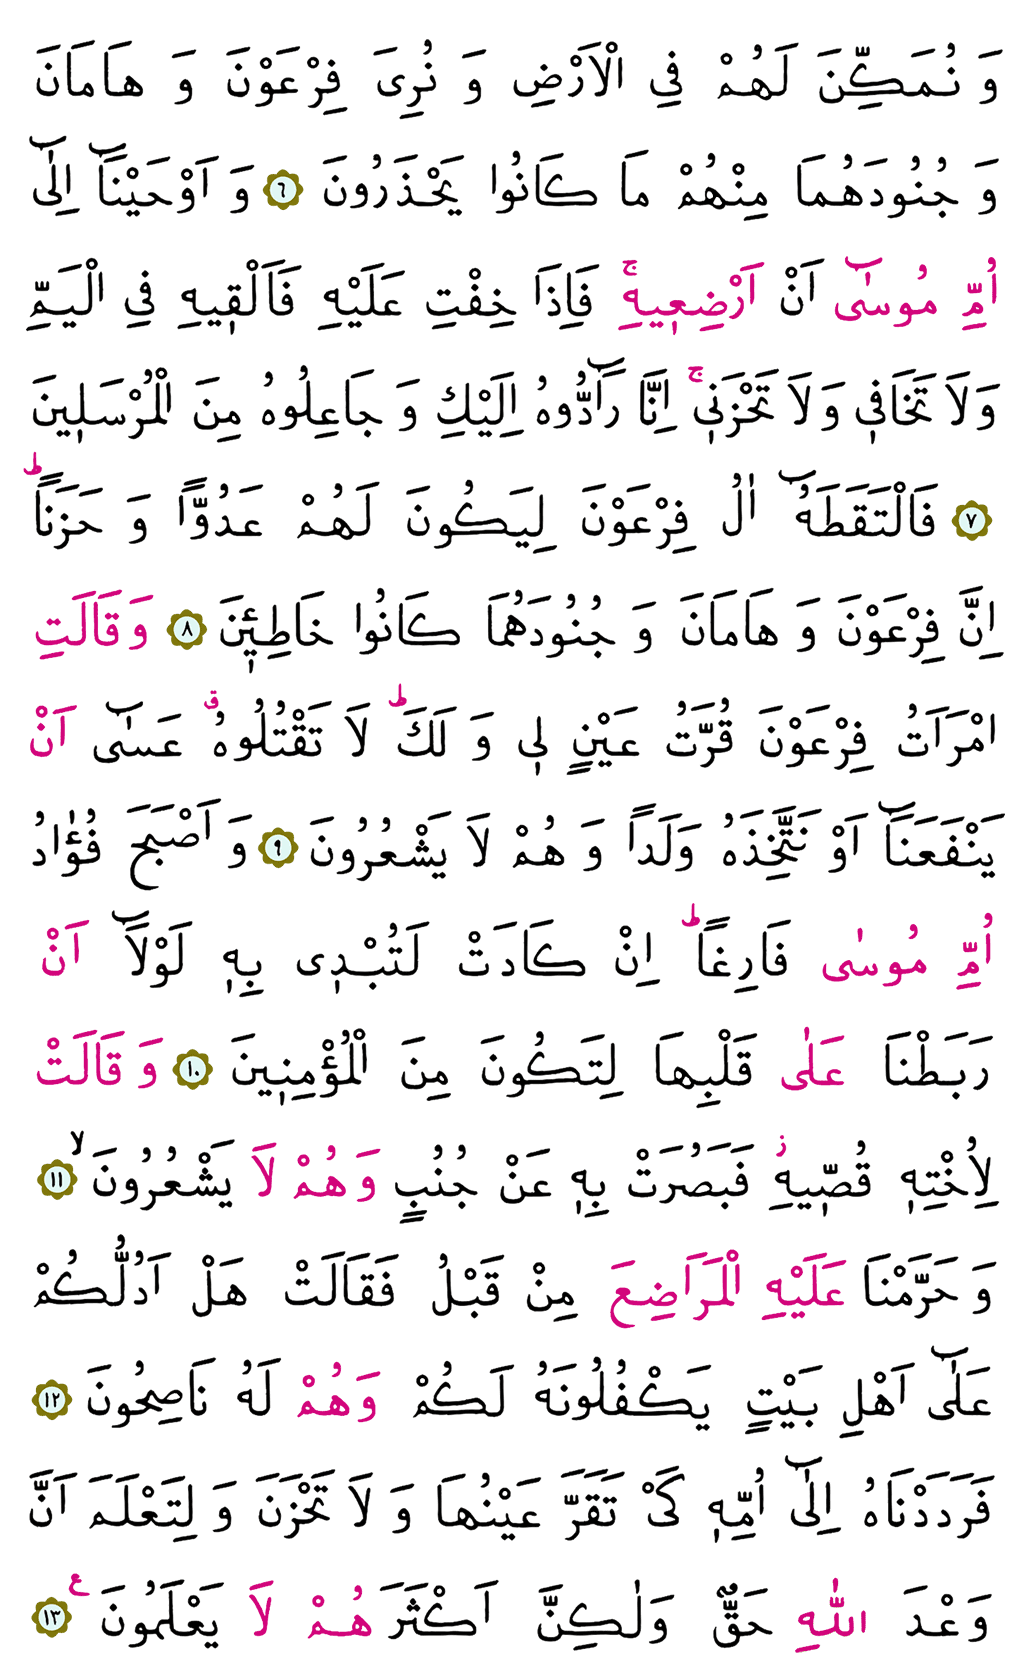 وَ نُمَكِّنَ لَهُمْ فِي الْاَرْضِ وَ نُرِيَ فِرْعَوْنَ وَ هَامَانَ
وَ جُنُودَهُمَا مِنْهُمْ مَا كَانُوا يَحْذَرُونَ ﴿٦﴾ وَ اَوْحَيْنَٓا اِلٰٓى
اُمِّ مُوسٰٓى اَنْ اَرْضِعٖيهِۚ فَاِذَا خِفْتِ عَلَيْهِ فَاَلْقٖيهِ فِي الْيَمِّ
وَلَا تَخَافٖي وَلَا تَحْزَنٖيۚ اِنَّا رَٓادُّوهُ اِلَيْكِ وَ جَاعِلُوهُ مِنَ الْمُرْسَلٖينَ
﴿٧﴾ فَالْتَقَطَهُٓ اٰلُ فِرْعَوْنَ لِيَكُونَ لَهُمْ عَدُوًّا وَ حَزَنًاؕ
اِنَّ فِرْعَوْنَ وَ هَامَانَ وَ جُنُودَهُمَا كَانُوا خَاطِـٖٔينَ ﴿٨﴾ وَ قَالَتِ
امْرَاَتُ فِرْعَوْنَ قُرَّتُ عَيْنٍ لٖي وَ لَكَؕ لَا تَقْتُلُوهُۗ عَسٰٓى اَنْ
يَنْفَعَنَٓا اَوْ نَتَّخِذَهُ وَلَدًا وَ هُمْ لَا يَشْعُرُونَ ﴿٩﴾ وَ اَصْبَحَ فُؤٰادُ
اُمِّ مُوسٰى فَارِغًاؕ اِنْ كَادَتْ لَتُبْدٖي بِهٖ لَوْلَٓا اَنْ
رَبَطْنَا عَلٰى قَلْبِهَا لِتَكُونَ مِنَ الْمُؤْمِنٖينَ ﴿١٠﴾ وَ قَالَتْ
لِاُخْتِهٖ قُصّٖيهِؗ فَبَصُرَتْ بِهٖ عَنْ جُنُبٍ وَ هُمْ لَا يَشْعُرُونَۙ ﴿١١﴾
وَ حَرَّمْنَا عَلَيْهِ الْمَرَاضِعَ مِنْ قَبْلُ فَقَالَتْ هَلْ اَدُلُّكُمْ
عَلٰٓى اَهْلِ بَيْتٍ يَكْفُلُونَهُ لَكُمْ وَهُمْ لَهُ نَاصِحُونَ ﴿١٢﴾
فَرَدَدْنَاهُ اِلٰٓى اُمِّهٖ كَيْ تَقَرَّ عَيْنُهَا وَ لَا تَحْزَنَ وَ لِتَعْلَمَ اَنَّ
وَعْدَ اللّٰهِ حَقٌّ وَلٰكِنَّ اَكْثَرَ هُمْ لَا يَعْلَمُونَ ع ﴿١٣﴾